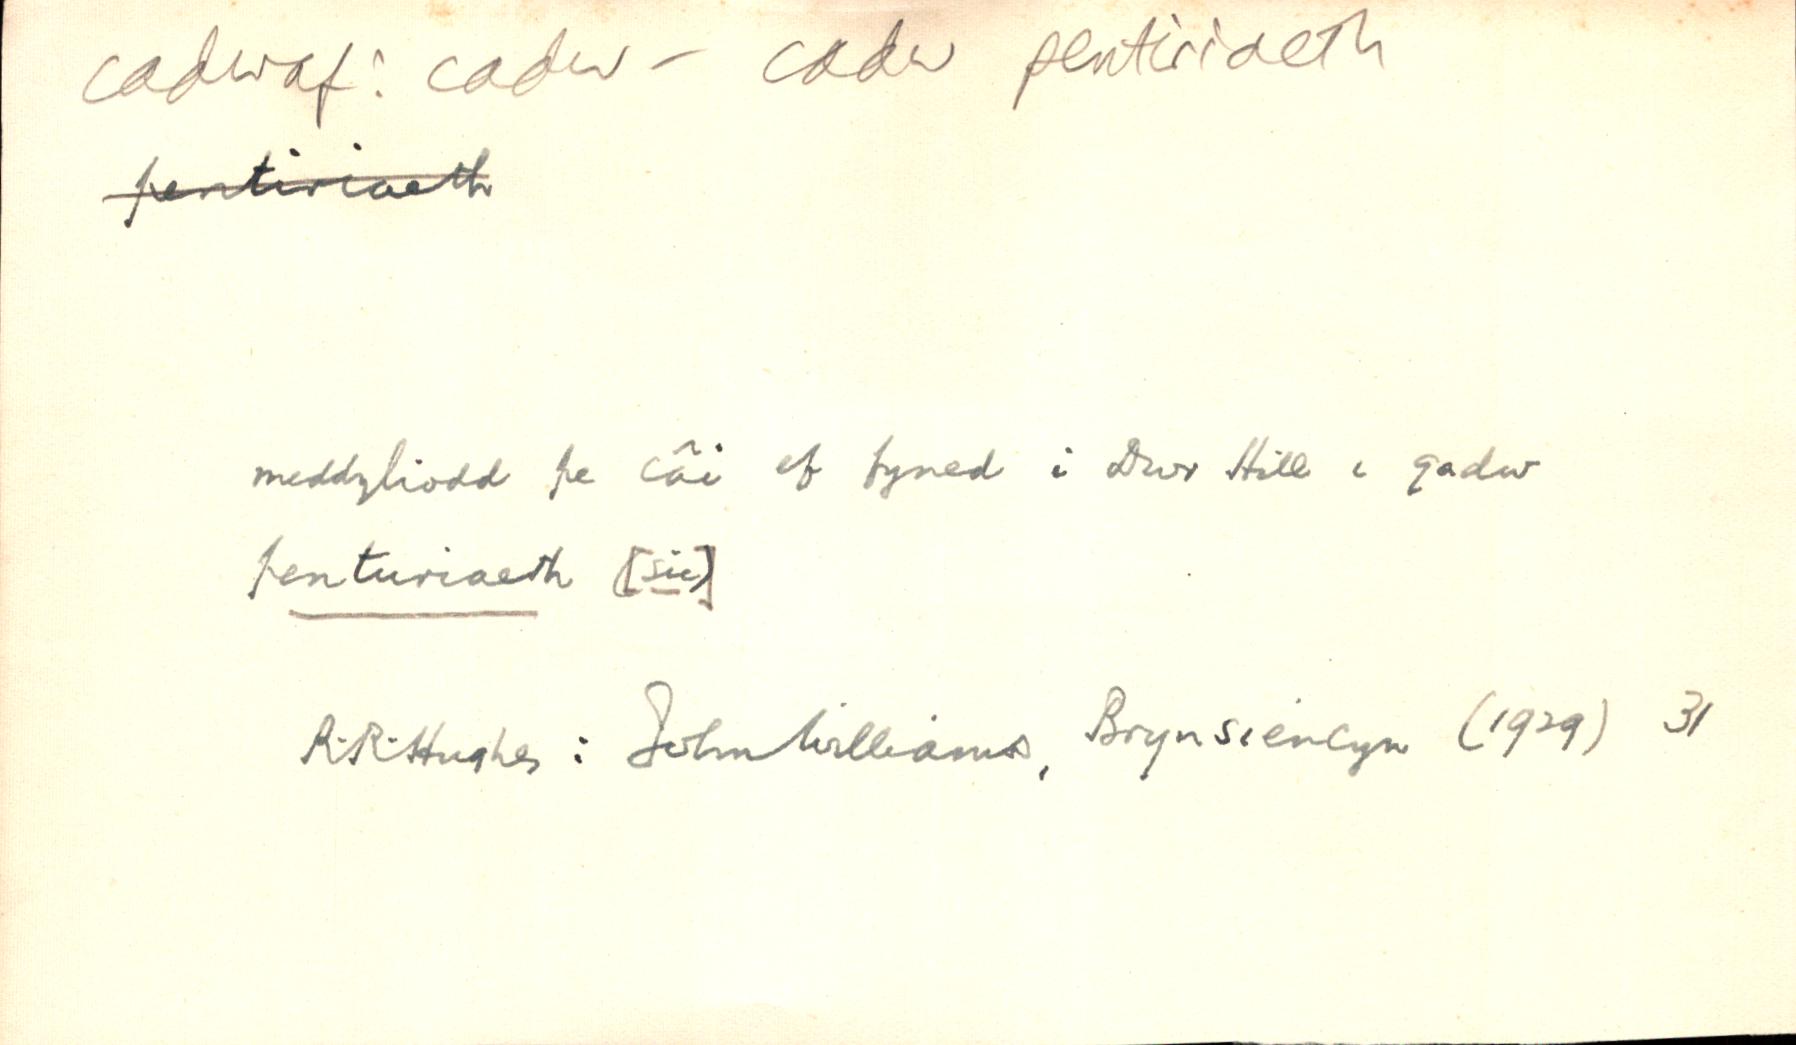 cadwaf: cadw – cadw pentiriaeth
pentiriaeth
meddyliodd pe câi ef fyned i Dwr Hill i gadw
penturiaeth [sic]
R.R. Hughes : John Williams, Brynsiencyn (1929) 31